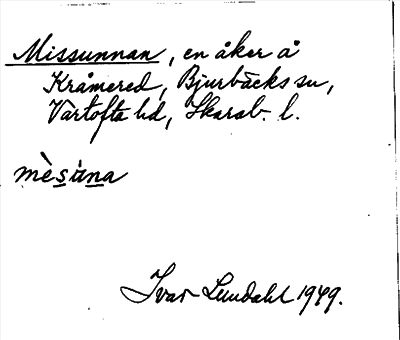 Missunnan, en åker å
Kråmered, Bjurbäcks sn,
Vartofta hd, Skarab. l.
mèsùna
Ivar Lundahl 1949.